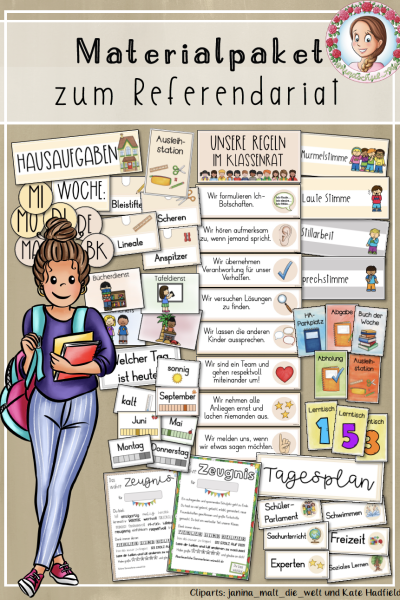 Materialpaket
zum Referendariat
HAUSAUFGABEN
Ausleih-
station
UNSERE REGELN
IM KLASSENRAT
Murmelstimme
Laute Stimme
Stillarbeit
prechstimme
WOCHE:
MI
MO
DI
DE
MA
BK
Bleistifte
Scheren
Lineale
Anspitzer
Bücherdienst
Tafeldienst
Wir formulieren Ich-
Botschaften.
Wir hören aufmerksam
zu, wenn jemand spricht.
Wir übernehmen
Verantwortung für unser
Verhalten.
Wir versuchen Lösungen
zu finden.
Wir lassen die anderen
Kinder aussprechen.
Wir sind ein Team und
gehen respektvoll
miteinander um!
Wir nehmen alle
Anliegen ernst und
lachen niemanden aus.
Wir melden uns, wenn
wir etwas sagen möchten.
HA-
Parkplatz
Abgabe
Buch der
Woche
Abholung
Ausleih-
station
Lerntisch
1
Lerntisch
5
Lerntisch
3
Welcher Tag
ist heute
sonnig
kalt
September
Juni
Mai
Montag
Donnerstag
Zeugnis
Zeugnis
Tagesplan
Schüler-
Parlament
Schwimmen
Sachunterricht
Freizeit
Experten
Soziales Lernen
Cliparts: janina_malt_die_welt und Kate Hadfield